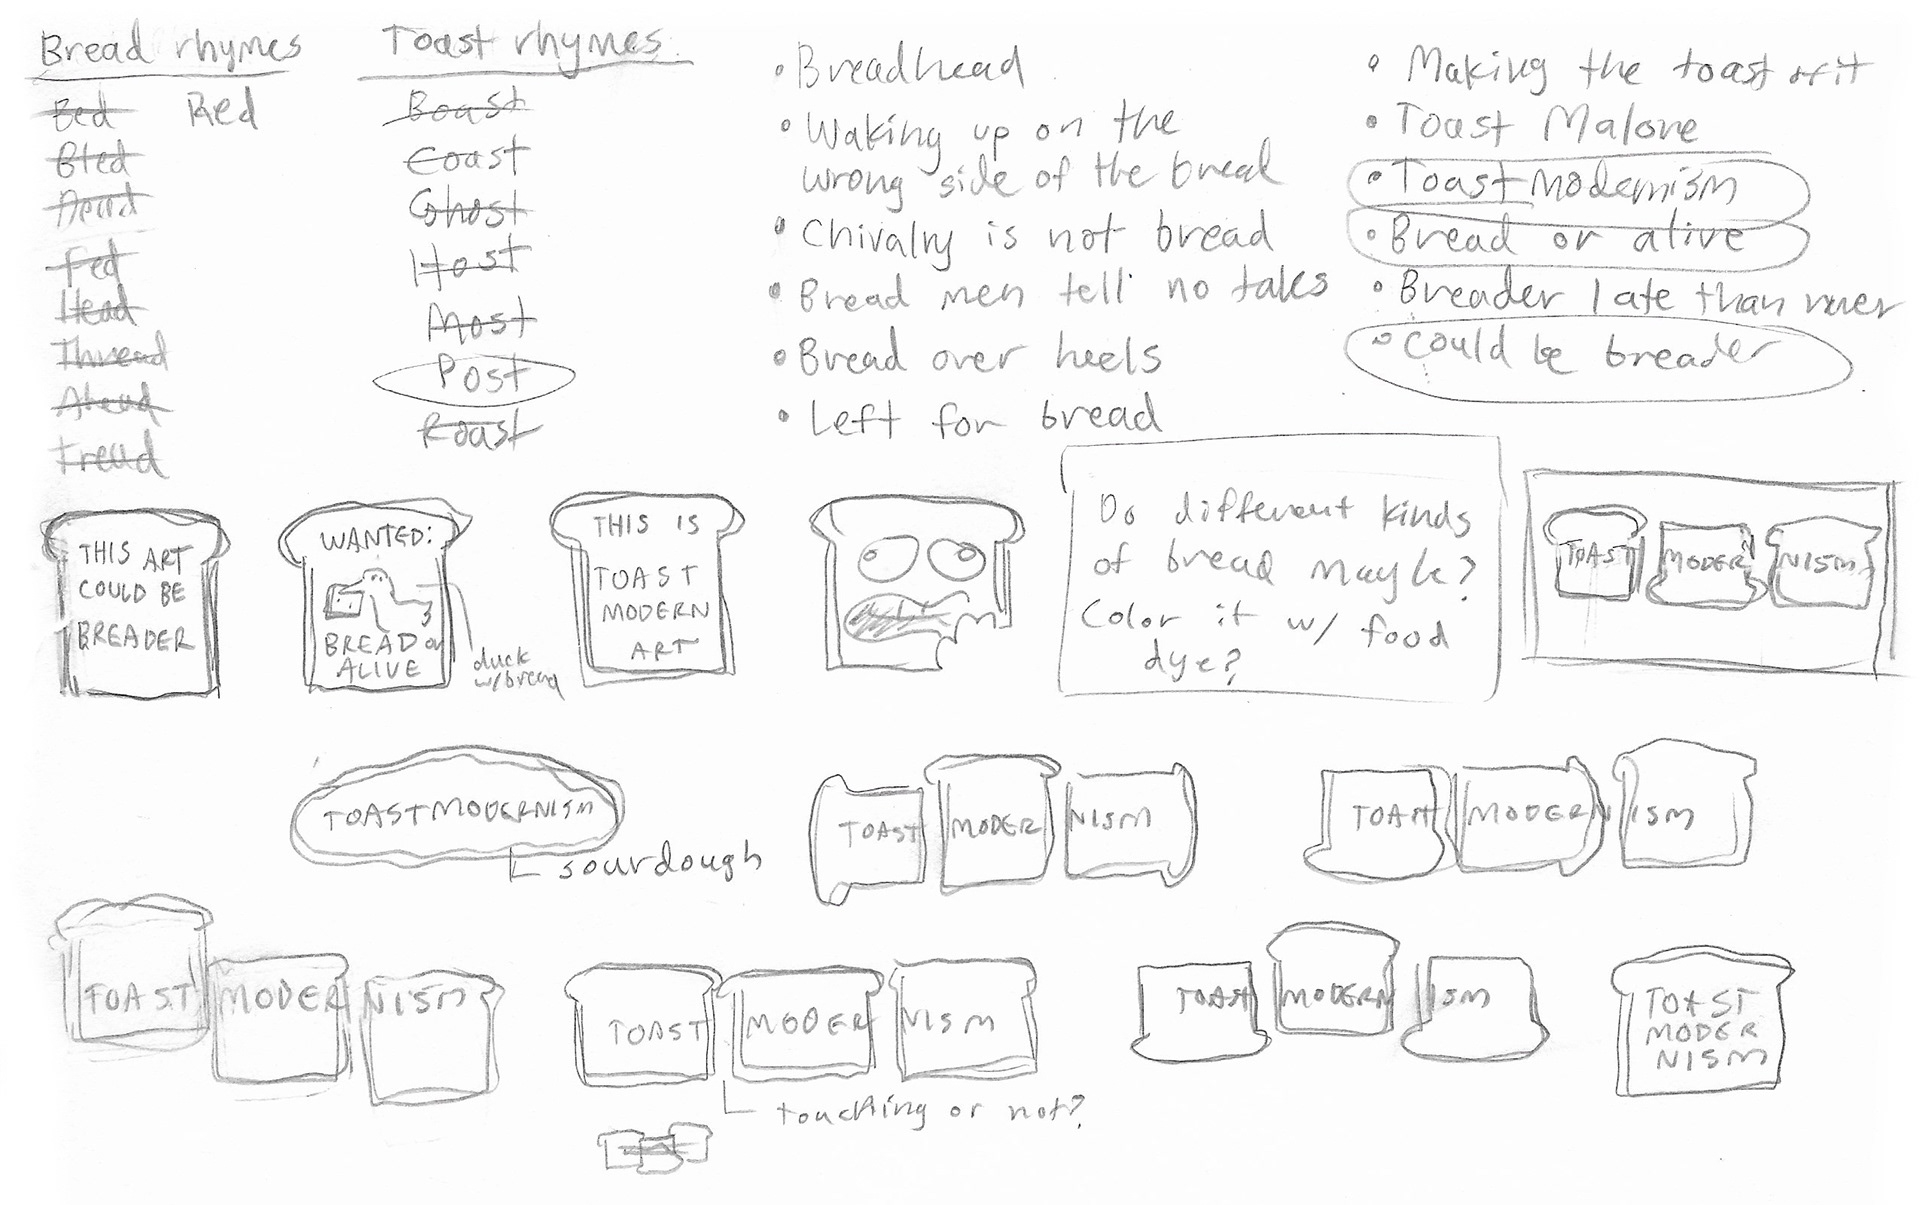 Bread rhymes
Bed Red
Bled
Dead
Fed
Head
Thread
Ahead
Tread
Toast rhymes
Boast
Coast
Ghost
Host
Most
Post
Roast
• Breadhead
• Waking up on the
wrong side of the bread
• Chivalry is not bread
• Bread men tell no tales
• Bread over heels
• Left for bread
• Making the toast of it
• Toast Malone
• Toast modernism
• Bread or alive
• Breader late than never
• Could be breader
THIS ART
COULD BE
BREADER
WANTED:
BREAD or
ALIVE
duck
w/bread
THIS IS
TOAST
MODERN
ART
Do different kinds
of bread maybe?
Color it w/ food
dye?
TOAST MODER NISM
TOASTMODERNISM
sourdough
TOAST MODER NISM
TOAST MODERN ISM
TOAST MODER NISM
TOAST MODER NISM
touching or not?
TOAST MODERN ISM
TOAST
MODER
NISM